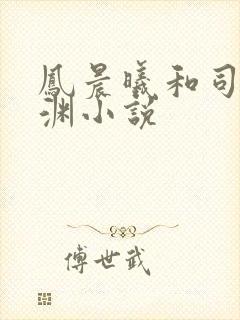 鳳晨曦和司
渊小說
傅世武